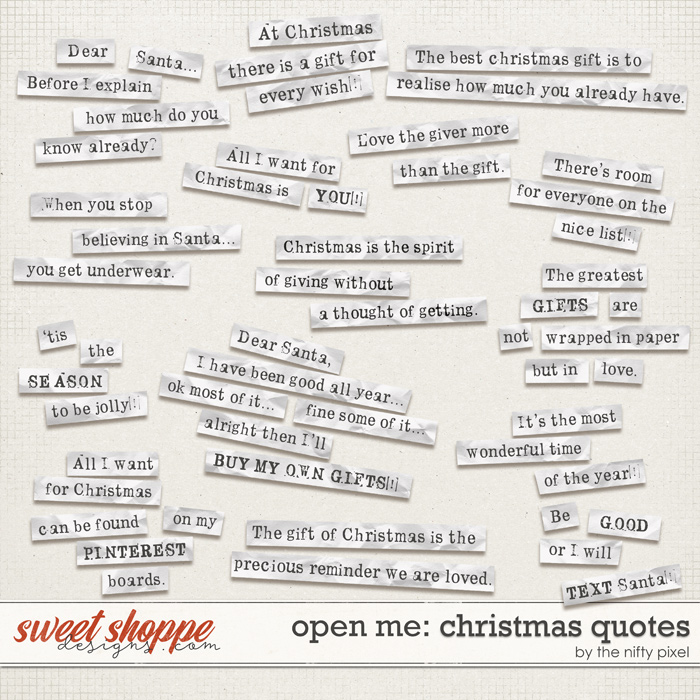 Dear Santa...
Before I explain
how much do you
know already?
At Christmas
there is a gift for
every wish[!]
The best christmas gift is to
realise how much you already have.
Love the giver more
than the gift.
All I want for
Christmas is YOU[!]
There's room
for everyone on the
nice list[!]
When you stop
believing in Santa...
you get underwear.
Christmas is the spirit
of giving without
a thought of getting.
The greatest
GIFTS are
not wrapped in paper
but in love.
'tis
the
SEASON
to be jolly[!]
Dear Santa,
I have been good all year...
ok most of it...
fine some of it...
alright then I'll
BUY MY OWN GIFTS[!]
It's the most
wonderful time
of the year[!]
All I want
for Christmas
can be found on my
PINTEREST
boards.
The gift of Christmas is the
precious reminder we are loved.
Be GOOD
or I will
TEXT Santa[!]
sweet shoppe
designs.com
open me: christmas quotes
by the nifty pixel